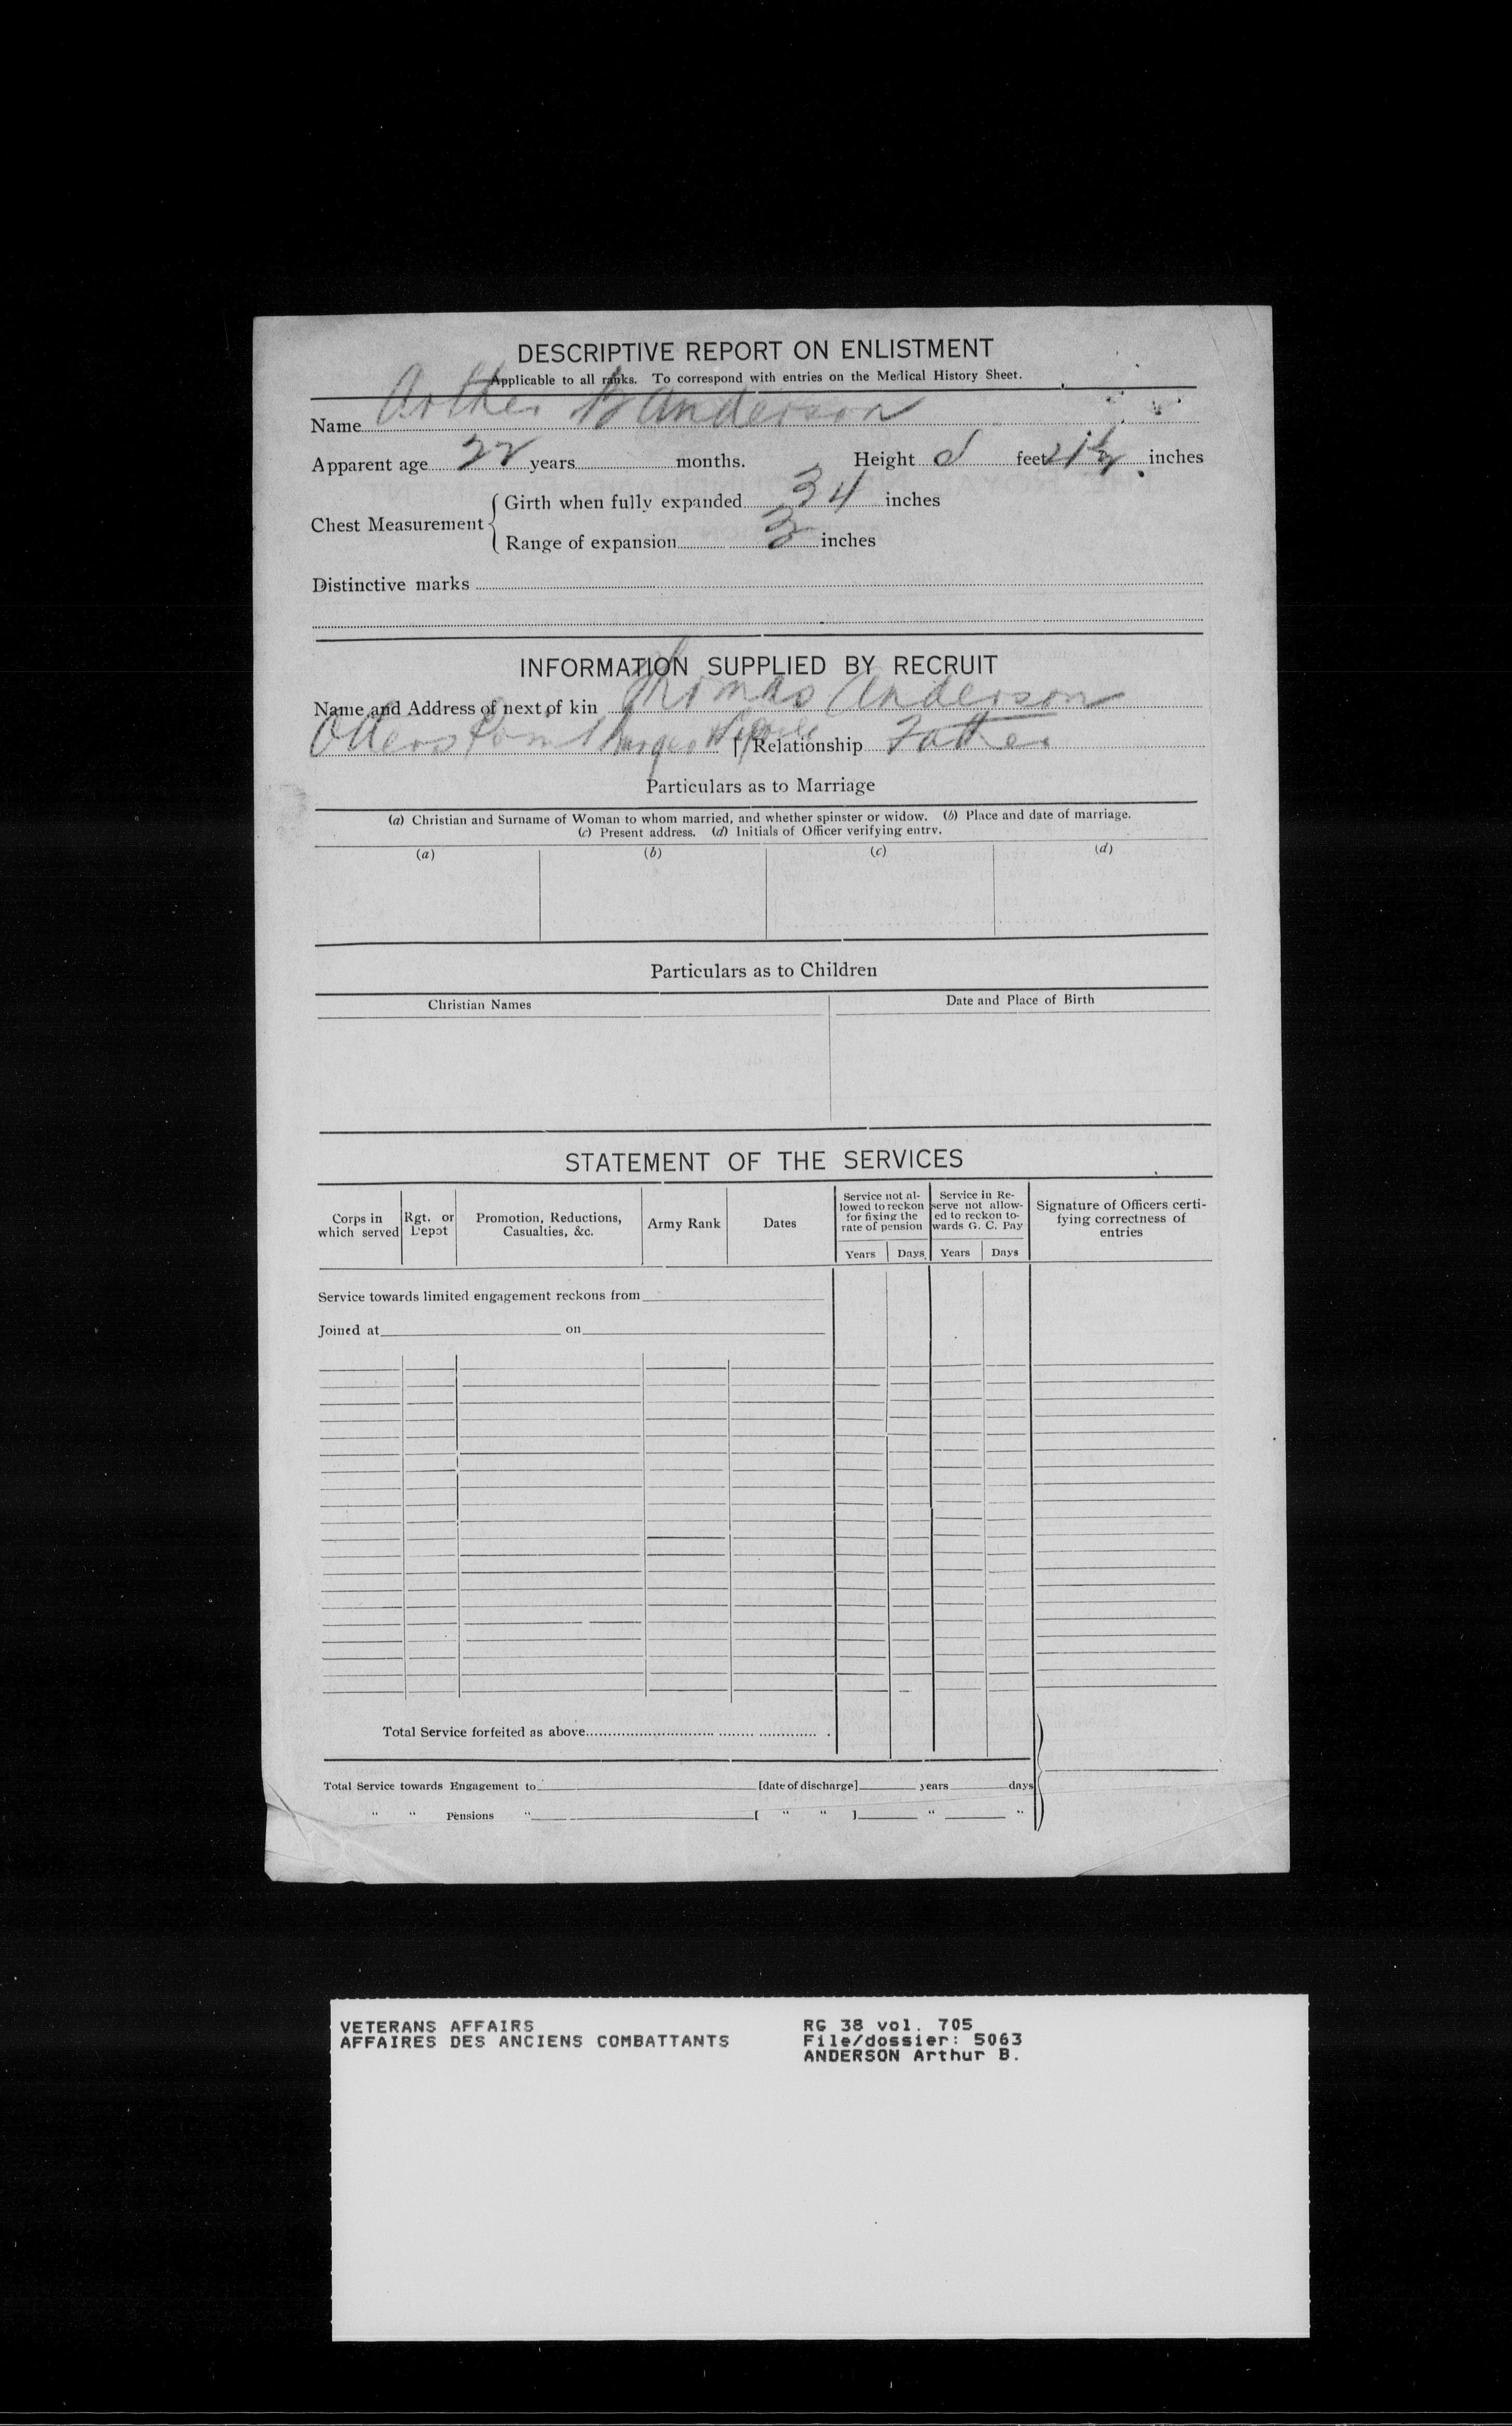 DESCRIPTIVE REPORT ON ENLISTMENT
Applicable to all ranks. To correspond with entries on the Medical History Sheet.
Name Arther B Anderson
Apparent age 22 years months. Height 5 feet 1½ inches
Chest Measurement
Girth when fully expanded 34 inches
Range of expansion 3 inches
Distinctive marks
INFORMATION SUPPLIED BY RECRUIT
Name and Address of next of kin Thomas Anderson
Otters Point Relationship Father
Particulars as to Marriage
(a) Christian and Surname of Woman to whom married, and whether spinster or widow. (b) Place and date of marriage.
(c) Present address. (d) Initials of Officer verifying entry.
(a) (b) (c) (d)
Particulars as to Children
Christian Names Date and Place of Birth
STATEMENT OF THE SERVICES
Corps in which served Rgt. or Depot Promotion, Reductions, Casualties, &c. Army Rank Dates Service not allowed to reckon for fixing the rate of pension Service in Reserve not allowed to reckon towards G. C. Pay Signature of Officers certifying correctness of entries
Years Days Years Days
Service towards limited engagement reckons from
Joined at on
Total Service forfeited as above
Total Service towards Engagement to [date of discharge] years days
" " Pensions " [ " " ] " "
VETERANS AFFAIRS RG 38 vol. 705
AFFAIRES DES ANCIENS COMBATTANTS File/dossier: 5063
ANDERSON Arthur B.